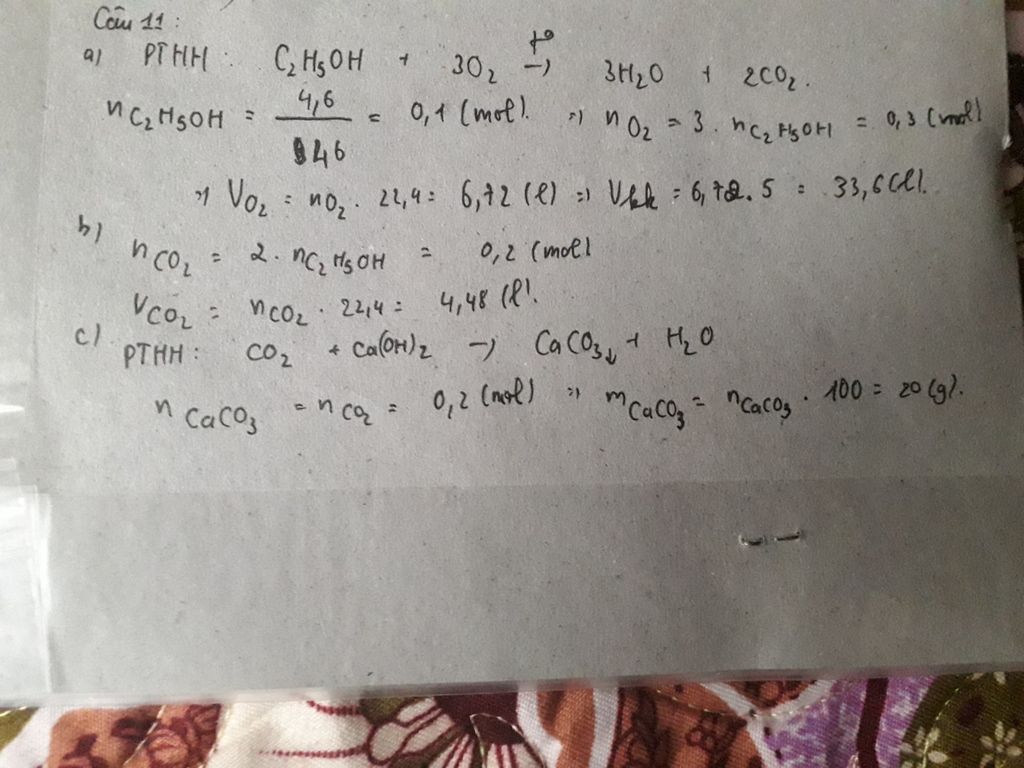 Câu 11:
a) PTHH: C₂H₅OH + 3O₂ –t°→ 3H₂O + 2CO₂.
nC₂H₅OH = 4,6/46 = 0,1 (mol). => nO₂ = 3. nC₂H₅OH = 0,3 (mol)
=> VO₂ = nO₂. 22,4 = 6,72 (l) => Vkk = 6,72. 5 = 33,6 (l).
b) nCO₂ = 2. nC₂H₅OH = 0,2 (mol)
VCO₂ = nCO₂. 22,4 = 4,48 (l).
c). PTHH: CO₂ + Ca(OH)₂ → CaCO₃↓ + H₂O
nCaCO₃ = nCO₂ = 0,2 (mol) => mCaCO₃ = nCaCO₃. 100 = 20 (g).